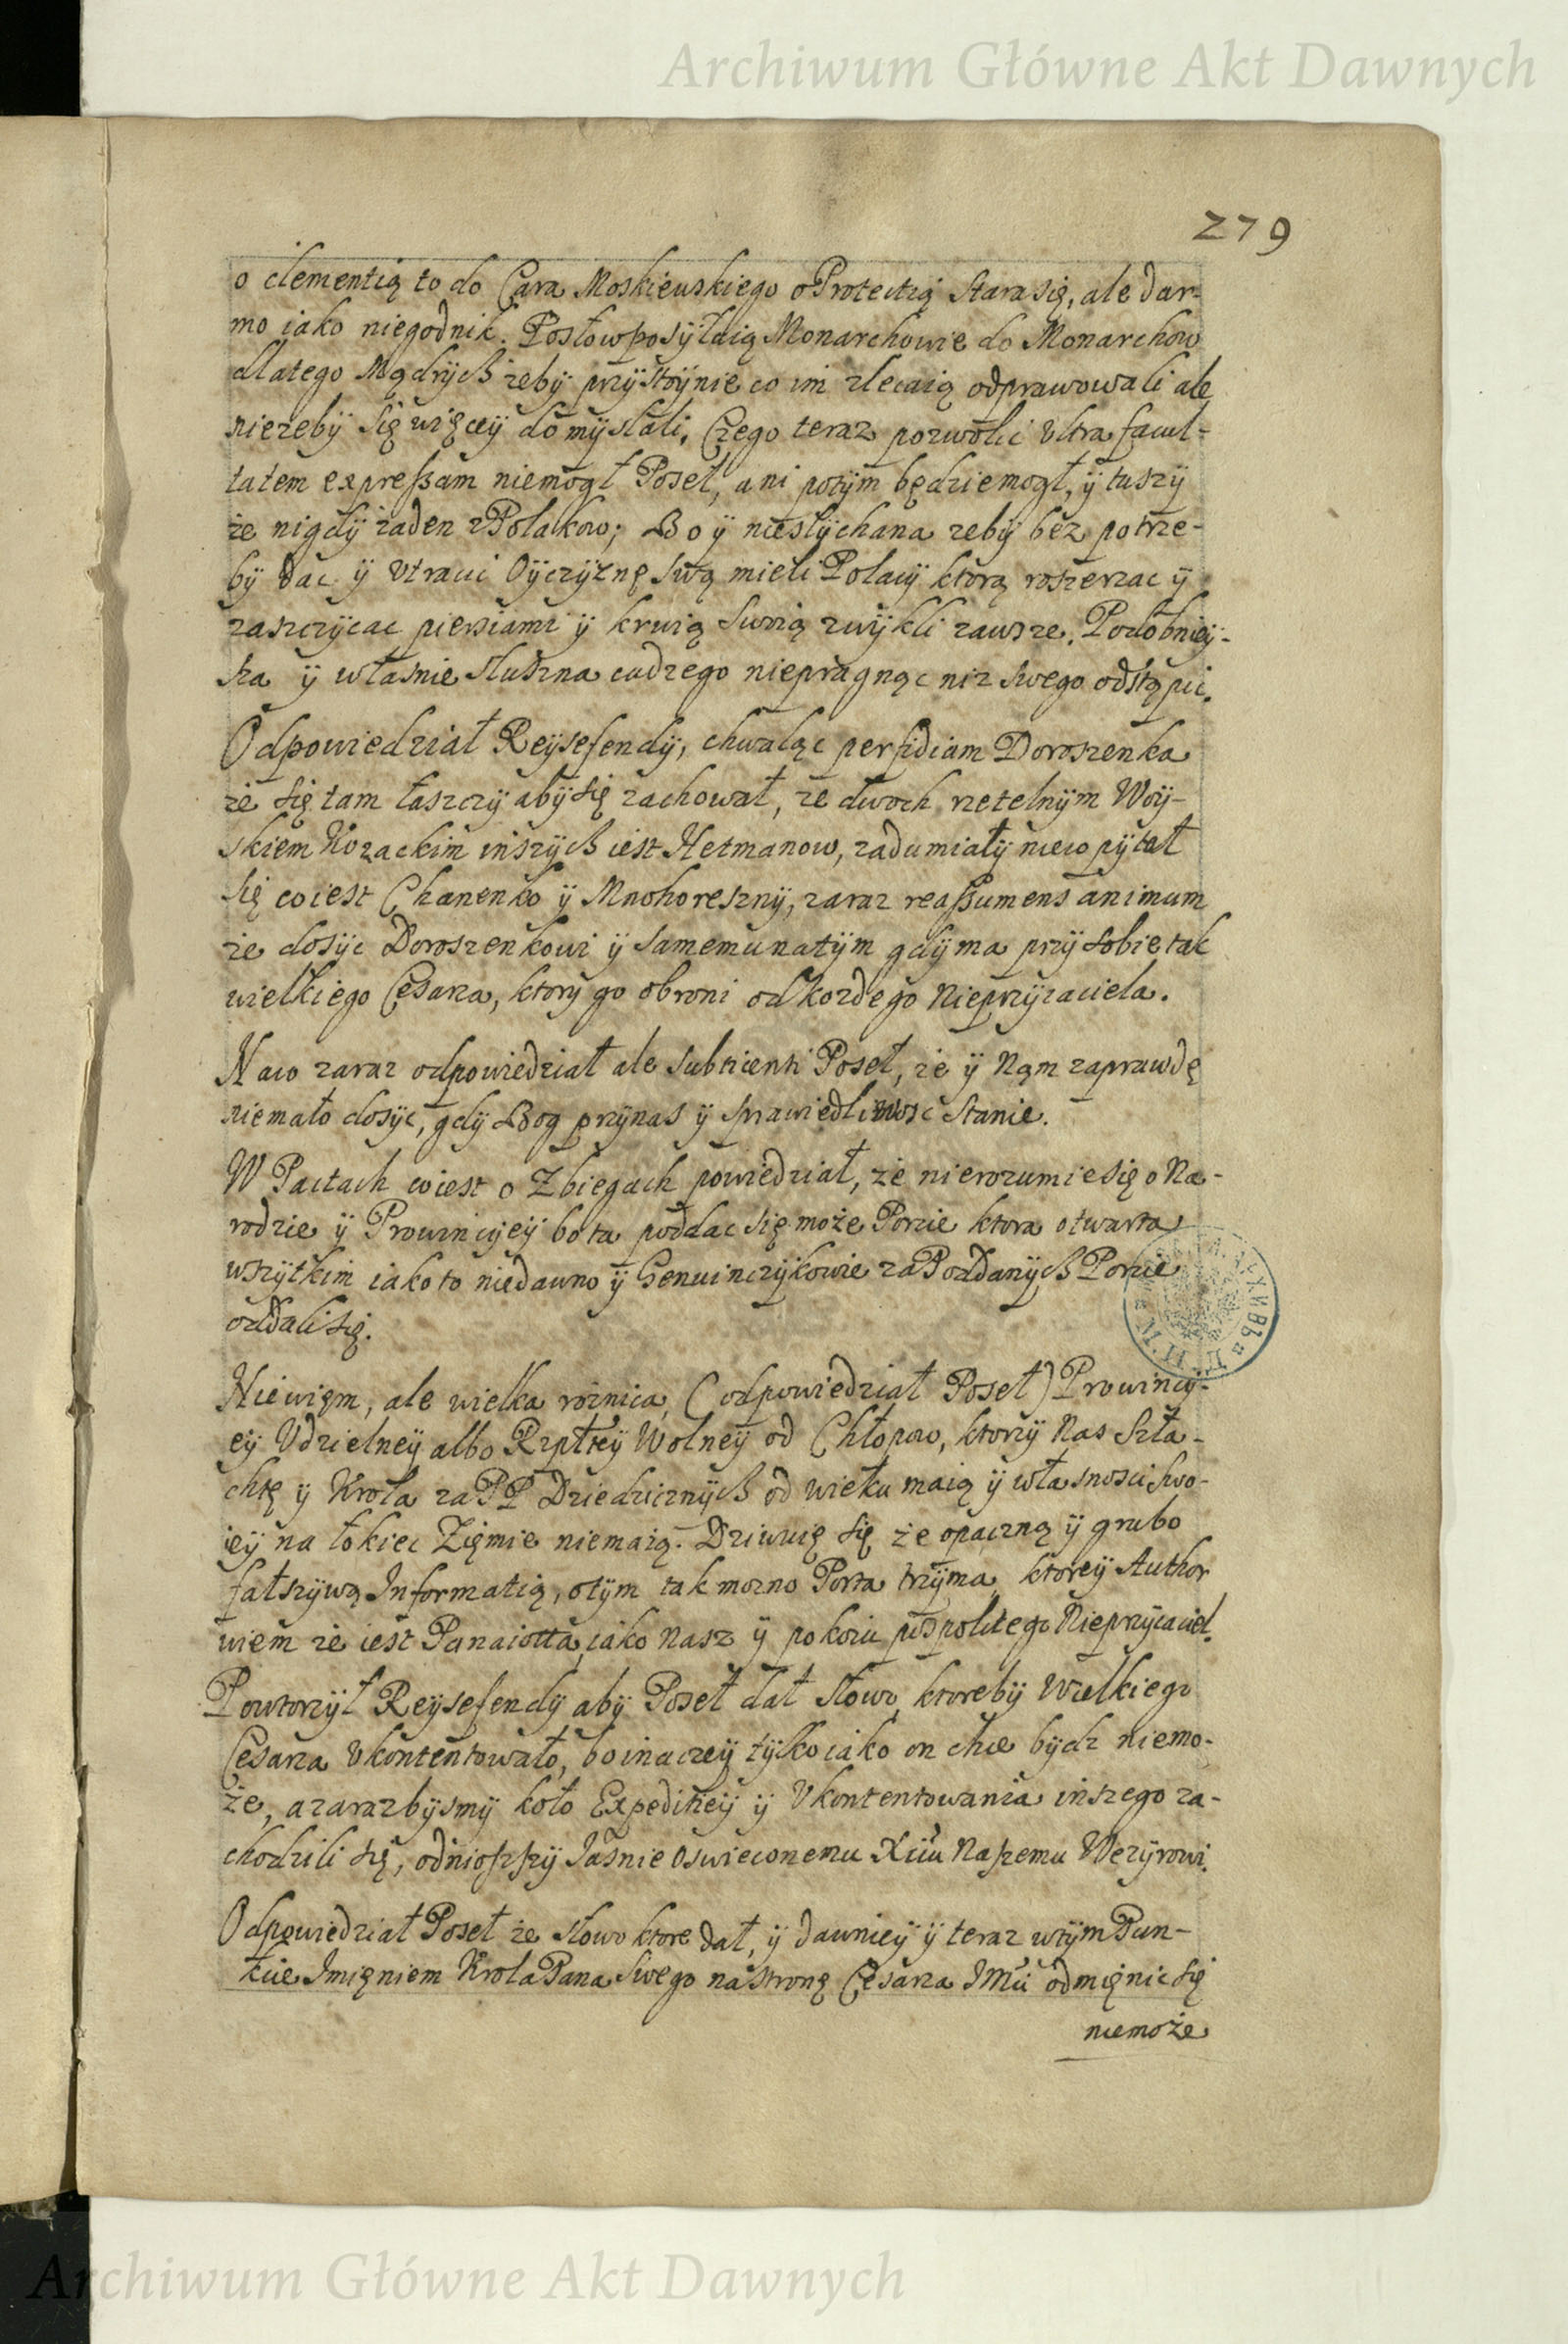 Archiwum Główne Akt Dawnych
279
o clementią to do Cara Moskiewskiego o Protectią stara się, ale dar-
mo iako niegodnik. Posłow posÿłaią Monarchowie do Monarchow
dlatego Mądrÿch zebÿ przÿstoÿnie co im zlecaią odprawowali ale
niezebÿ się więceÿ domÿslali, Czego teraz pozwolić Vltra facul-
tatem expressam niemogł Poseł, ani potÿm będzie mogł, ÿ tuszÿ
że nigdÿ żaden z Polakow; Bo ÿ niesłÿchana zebÿ bez potrze-
bÿ dac ÿ vtracić Oÿczÿznę swą mieli Polacÿ ktorą roszerzac ÿ
zaszczÿcac piersiami ÿ krwią swoią zwÿkli zawsze. Podobnieÿ-
sza ÿ własnie słuszna cudzego niepragnąc niz swego odstąpić.
Odpowiedział Reÿsefendÿ, chwaląc perfidiam Doroszenka
że się tam łaszczÿ abÿ się zachował, że dwoch rzetelnÿm Woÿ-
skiem Kozackim inszÿch iest Hetmanow, zadumiałÿ nieco pÿtał
się co iest Chanenko ÿ Mnohoresznÿ, zaraz reassumens animum
że dosÿc Doroszenkowi ÿ samemu natÿm gdÿ ma przÿ sobie tak
wielkiego Cesarza, ktorÿ go obroni od kozdego Nieprzÿiaciela.
Naco zaraz odpowiedział ale subticenti Poseł, że ÿ Nąm zaprawdę
niemało dosÿc, gdÿ Bog przÿnas ÿ sprawiedliwosc stanie.
W Pactach co iest o Zbiegach powiedział, że nierozumie się o Na-
rodzie ÿ Prowincÿeÿ bo ta poddac się może Porcie ktora otwarta
wszÿtkim iako to niedawno ÿ Genuinczÿkowie za Poddanÿch Porcie
oddali się.
Niewiem, ale wielka roznica, (odpowiedział Poseł) Prowincÿ-
eÿ Vdzielneÿ albo Rzpłteÿ Wolneÿ od Chłopow, ktorzÿ Nas Szla-
chtę ÿ Krola za PP Dziedzicznÿch od wieku maią ÿ własnosci swo-
ieÿ na łokiec Ziemie niemaią. Dziwuię się że opaczną ÿ grubo
fałszÿwą Informatią, otÿm tak mozno Porta trzÿma, ktoreÿ Author
wiem że iest Panaiotta, iako Nasz ÿ pokoiu pospolitego Nieprzÿiaciel.
Powtorzÿł Reÿsefendÿ abÿ Poseł dał słowo, ktorebÿ Wielkiego
Cesarza Vkontentowało, bo inaczeÿ tÿlko iako on chce bÿdz niemo-
że, a zarazbÿsmÿ koło Expeditieÿ ÿ Vkontentowania inszego za-
chodzili się, odniosszÿ Jasnie Oswieconemu Xciu Naszemu Wezÿrowi.
Odpowiedział Poseł że słowo ktore dał, ÿ dawnieÿ ÿ teraz wtÿm Pun-
kcie Imięniem Krola Pana swego na stronę Cesarza JMci odmięnic się
niemoże
Archiwum Główne Akt Dawnych